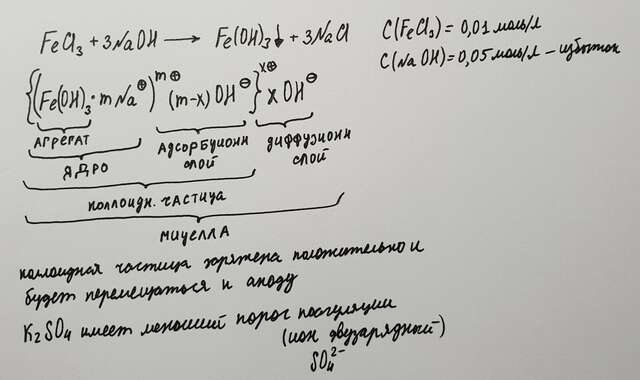 FeCl₃ + 3NaOH ⟶ Fe(OH)₃↓ + 3NaCl
C(FeCl₃) = 0,01 моль/л
C(NaOH) = 0,05 моль/л – избыток
{(Fe(OH)₃ · m Na⊕)ᵐ⊕ (m-x) OH⊖}ˣ⊕ x OH⊖
АГРЕГАТ
ЯДРО
АДСОРБЦИОНН СЛОЙ
ДИФФУЗИОНН СЛОЙ
КОЛЛОИДН. ЧАСТИЦА
МИЦЕЛЛА
коллоидная частица заряжена положительно и
будет перемещаться к аноду
K₂SO₄ имеет меньший порог коагуляции
(ион двузарядный)
SO₄²⁻